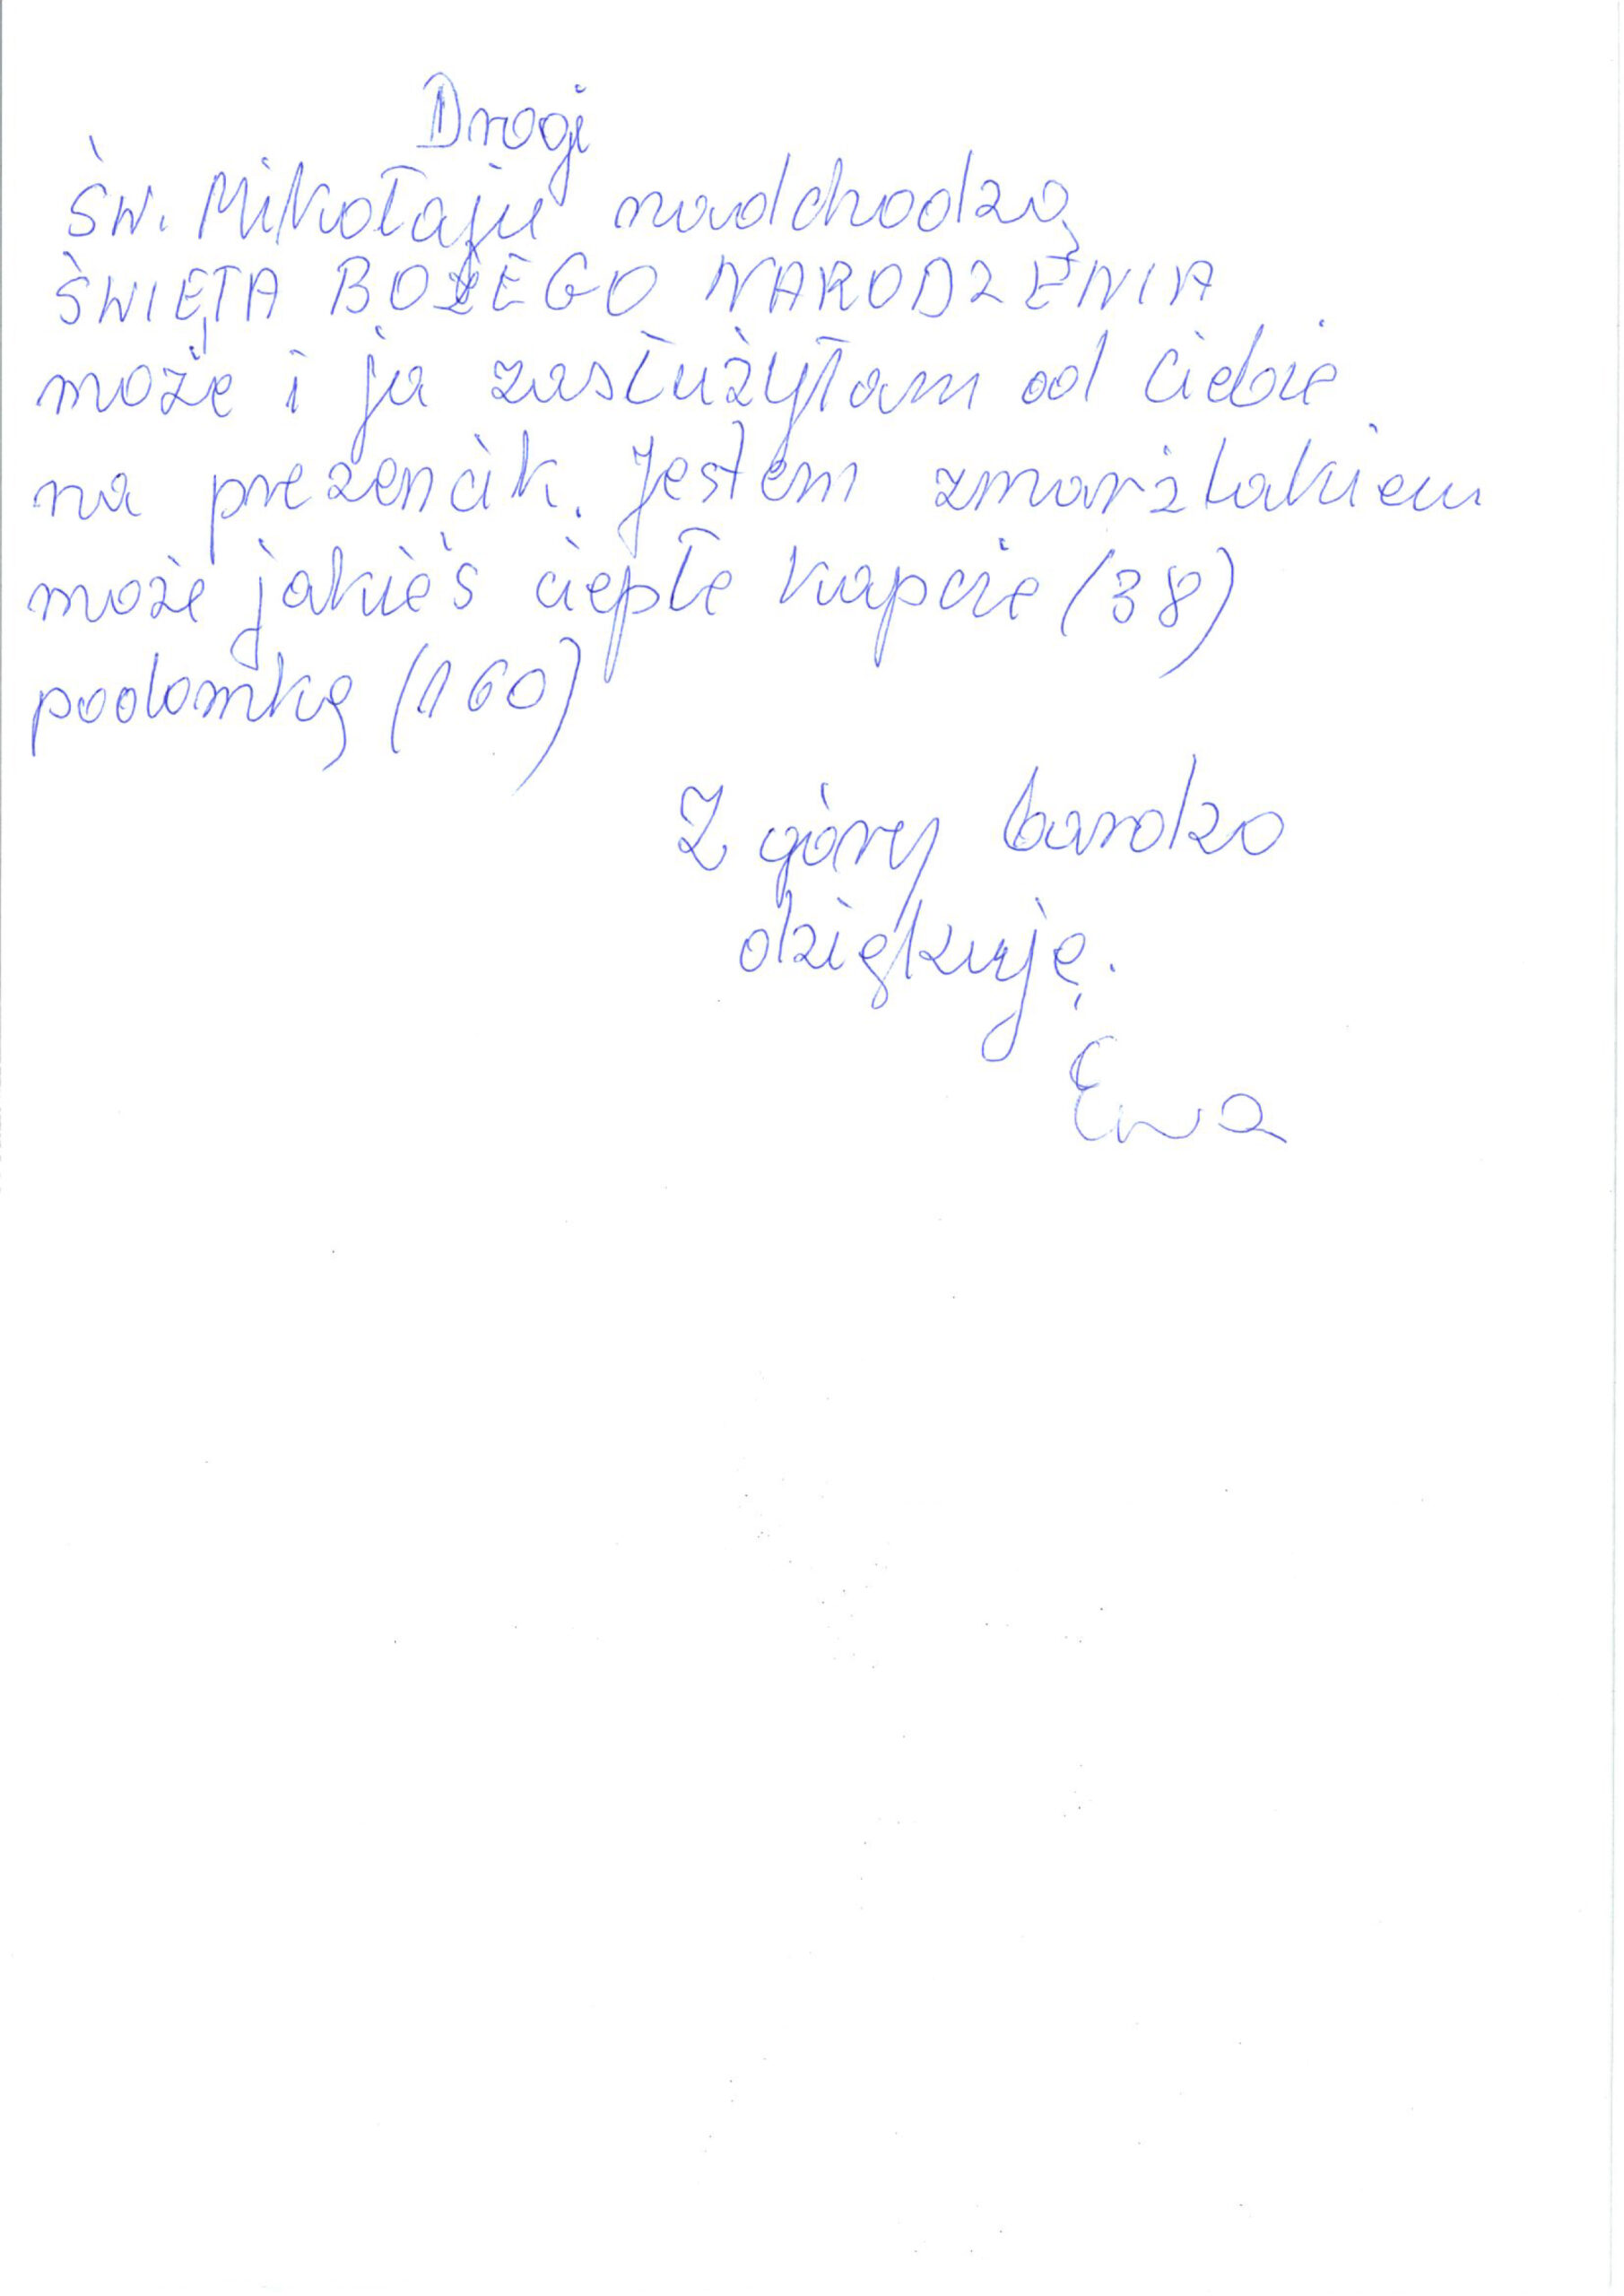 Drogi
św. Mikołaju nadchodzą
ŚWIĘTA BOŻEGO NARODZENIA
może i ja zasłużyłam od Ciebie
na prezencik. Jestem zmarżlakiem
może jakieś ciepłe kapcie (38)
podomkę (160)
Z góry bardzo
dziękuję.
Ewa